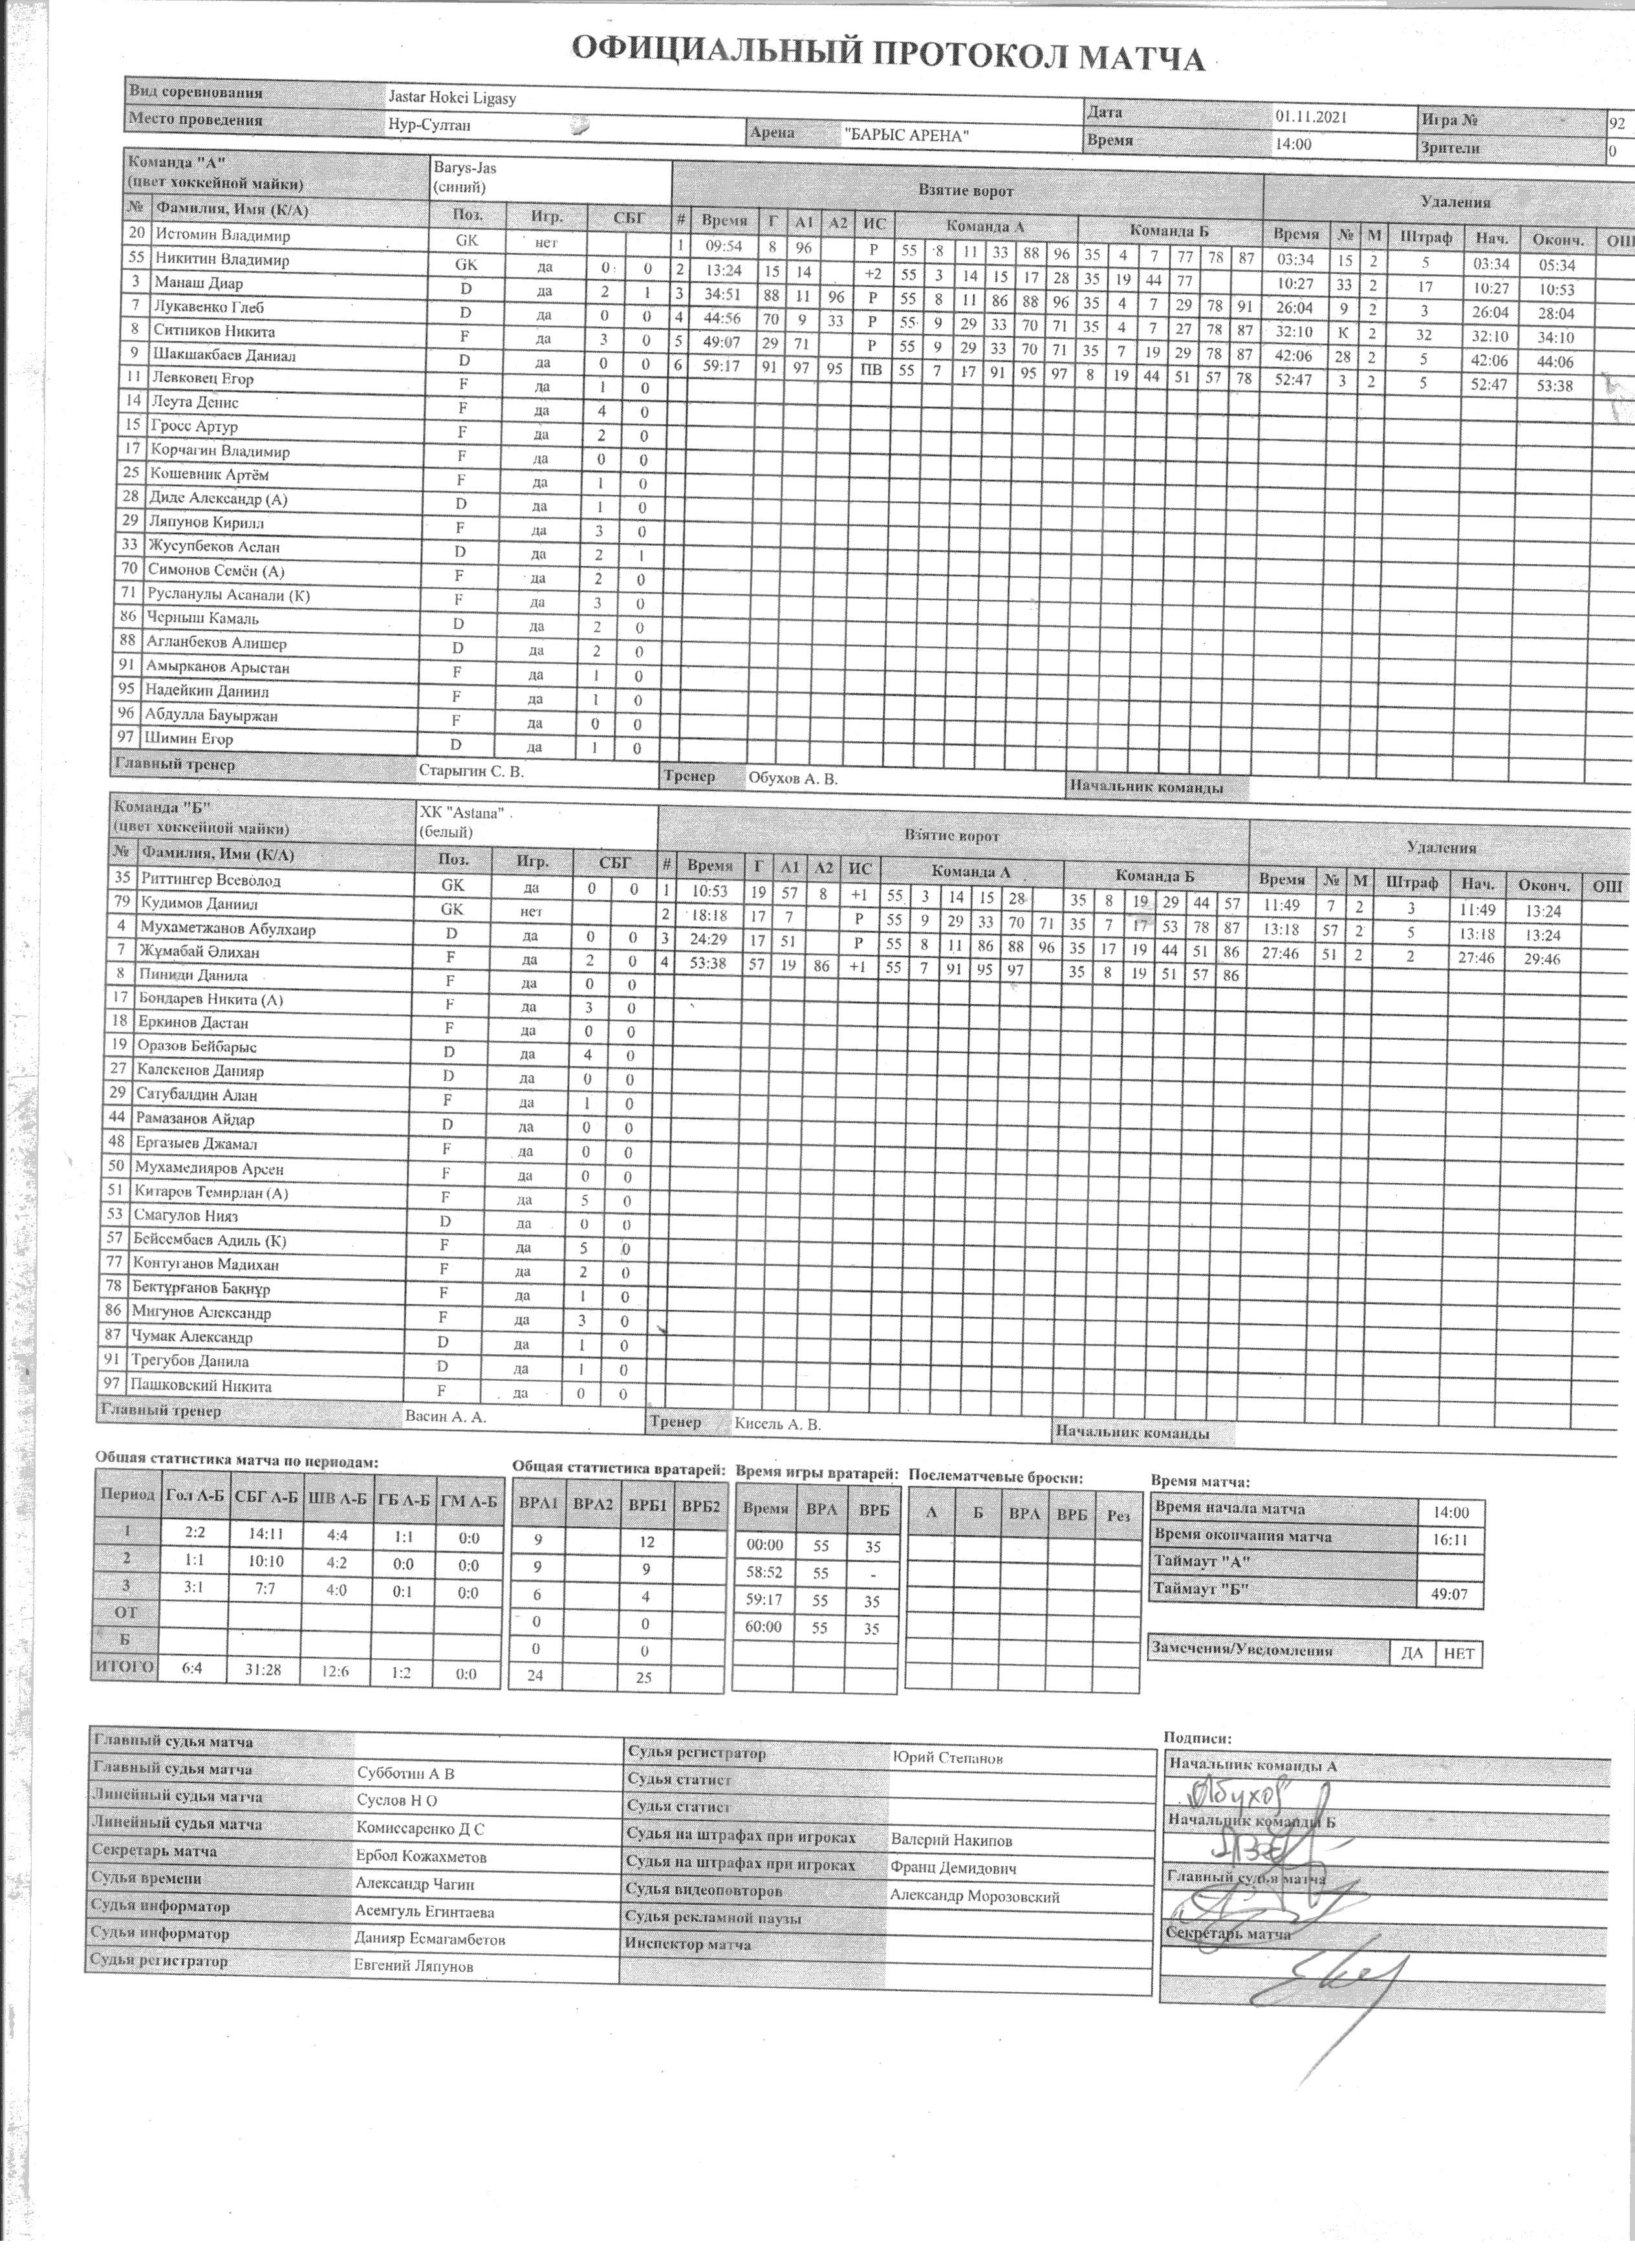 ОФИЦИАЛЬНЫЙ ПРОТОКОЛ МАТЧА
Вид соревнования Jastar Hokei Ligasy Дата 01.11.2021 Игра № 92
Место проведения Нур-Султан Арена "БАРЫС АРЕНА" Время 14:00 Зрители 0
Команда "А" Barys-Jas Взятие ворот Удаления
(цвет хоккейной майки) (синий)
№ Фамилия, Имя (К/А) Поз. Игр. СБГ # Время Г А1 А2 ИС Команда А Команда Б Время № М Штраф Нач. Оконч. ОШ
20 Истомин Владимир GK нет 1 09:54 8 96 Р 55 8 11 33 88 96 35 4 7 77 78 87 03:34 15 2 5 03:34 05:34
55 Никитин Владимир GK да 0 0 2 13:24 15 14 +2 55 3 14 15 17 28 35 19 44 77 10:27 33 2 17 10:27 10:53
3 Манаш Диар D да 2 1 3 34:51 88 11 96 Р 55 8 11 86 88 96 35 4 7 29 78 91 26:04 9 2 3 26:04 28:04
7 Лукавенко Глеб D да 0 0 4 44:56 70 9 33 Р 55 9 29 33 70 71 35 4 7 27 78 87 32:10 К 2 32 32:10 34:10
8 Ситников Никита F да 3 0 5 49:07 29 71 Р 55 9 29 33 70 71 35 7 19 29 78 87 42:06 28 2 5 42:06 44:06
9 Шакшакбаев Даниал D да 0 0 6 59:17 91 97 95 ПВ 55 7 17 91 95 97 8 19 44 51 57 78 52:47 3 2 5 52:47 53:38
11 Левковец Егор F да 1 0
14 Леута Денис F да 4 0
15 Гросс Артур F да 2 0
17 Корчагин Владимир F да 0 0
25 Кошевник Артём F да 1 0
28 Диде Александр (А) D да 1 0
29 Ляпунов Кирилл F да 3 0
33 Жусупбеков Аслан D да 2 1
70 Симонов Семён (А) F да 2 0
71 Русланулы Асанали (К) F да 3 0
86 Черныш Камаль D да 2 0
88 Агланбеков Алишер D да 2 0
91 Амырканов Арыстан F да 1 0
95 Надейкин Даниил F да 1 0
96 Абдулла Бауыржан F да 0 0
97 Шимин Егор D да 1 0
Главный тренер Старыгин С. В. Тренер Обухов А. В. Начальник команды
Команда "Б" ХК "Astana" Взятие ворот Удаления
(цвет хоккейной майки) (белый)
№ Фамилия, Имя (К/А) Поз. Игр. СБГ # Время Г А1 А2 ИС Команда А Команда Б Время № М Штраф Нач. Оконч. ОШ
35 Риттингер Всеволод GK да 0 0 1 10:53 19 57 8 +1 55 3 14 15 28 35 8 19 29 44 57 11:49 7 2 3 11:49 13:24
79 Кудимов Даниил GK нет 2 18:18 17 7 Р 55 9 29 33 70 71 35 7 17 53 78 87 13:18 57 2 5 13:18 13:24
4 Мухаметжанов Абулхаир D да 0 0 3 24:29 17 51 Р 55 8 11 86 88 96 35 17 19 44 51 86 27:46 51 2 2 27:46 29:46
7 Жұмабай Әлихан F да 2 0 4 53:38 57 19 86 +1 55 7 91 95 97 35 8 19 51 57 86
8 Пиниди Данила F да 0 0
17 Бондарев Никита (А) F да 3 0
18 Еркинов Дастан F да 0 0
19 Оразов Бейбарыс D да 4 0
27 Калекенов Данияр D да 0 0
29 Сатубалдин Алан F да 1 0
44 Рамазанов Айдар D да 0 0
48 Ергазыев Джамал F да 0 0
50 Мухамедияров Арсен F да 0 0
51 Китаров Темирлан (А) F да 5 0
53 Смагулов Нияз D да 0 0
57 Бейсембаев Адиль (К) F да 5 0
77 Контуганов Мадихан F да 2 0
78 Бектұрғанов Бақнұр F да 1 0
86 Мигунов Александр F да 3 0
87 Чумак Александр D да 1 0
91 Трегубов Данила D да 1 0
97 Пашковский Никита F да 0 0
Главный тренер Васин А. А. Тренер Кисель А. В. Начальник команды
Общая статистика матча по периодам: Общая статистика вратарей: Время игры вратарей: Послематчевые броски: Время матча:
Период Гол А-Б СБГ А-Б ШВ А-Б ГБ А-Б ГМ А-Б ВРА1 ВРА2 ВРБ1 ВРБ2 Время ВРА ВРБ А Б ВРА ВРБ Рез Время начала матча 14:00
1 2:2 14:11 4:4 1:1 0:0 9 12 00:00 55 35 Время окончания матча 16:11
2 1:1 10:10 4:2 0:0 0:0 9 9 58:52 55 - Таймаут "А"
3 3:1 7:7 4:0 0:1 0:0 6 4 59:17 55 35 Таймаут "Б" 49:07
ОТ 0 0 60:00 55 35
Б 0 0 Замечения/Уведомления ДА НЕТ
ИТОГО 6:4 31:28 12:6 1:2 0:0 24 25
Подписи:
Главный судья матча Судья регистратор Юрий Степанов Начальник команды А
Главный судья матча Субботин А В Судья статист
Обухов
Линейный судья матча Суслов Н О Судья статист Начальник команды Б
Линейный судья матча Комиссаренко Д С Судья на штрафах при игроках Валерий Накипов
Секретарь матча Ербол Кожахметов Судья на штрафах при игроках Франц Демидович Главный судья матча
Судья времени Александр Чагин Судья видеоповторов Александр Морозовский
Судья информатор Асемгуль Егинтаева Судья рекламной паузы Секретарь матча
Судья информатор Данияр Есмагамбетов Инспектор матча
Судья регистратор Евгений Ляпунов